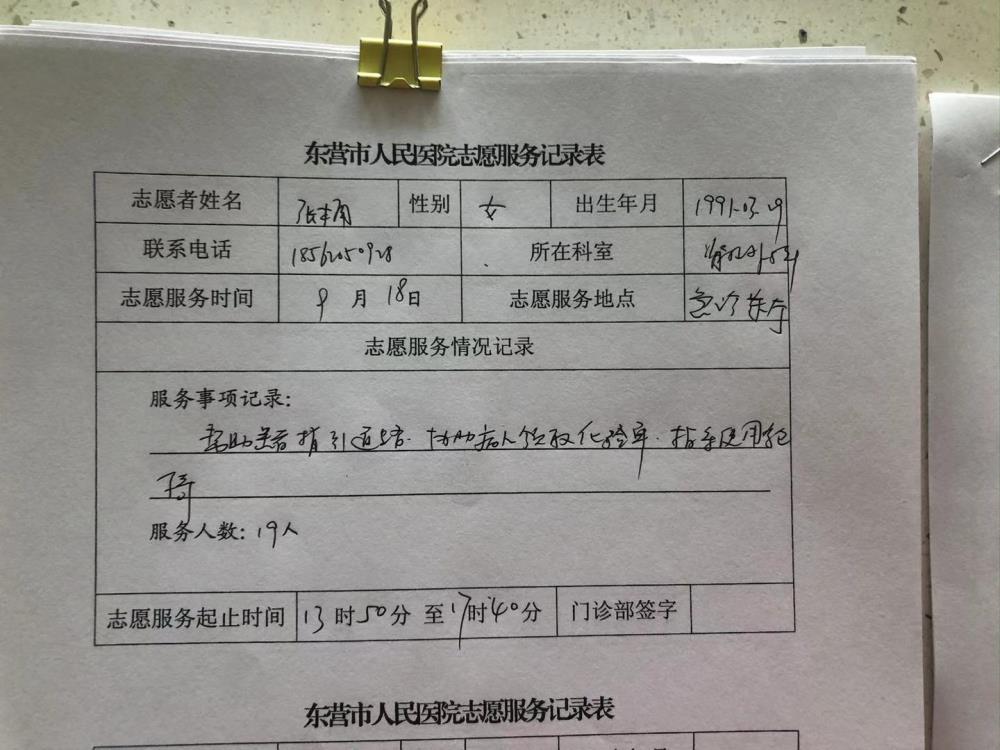 东营市人民医院志愿服务记录表
志愿者姓名 性别 女 出生年月 1991.03.29
联系电话 所在科室
志愿服务时间 9月18日 志愿服务地点 急诊
志愿服务情况记录
服务事项记录：
帮助患者指引道路.协助病人领取化验单.指导使用轮
椅
服务人数：19人
志愿服务起止时间 13时50分 至17时40分 门诊部签字
东营市人民医院志愿服务记录表